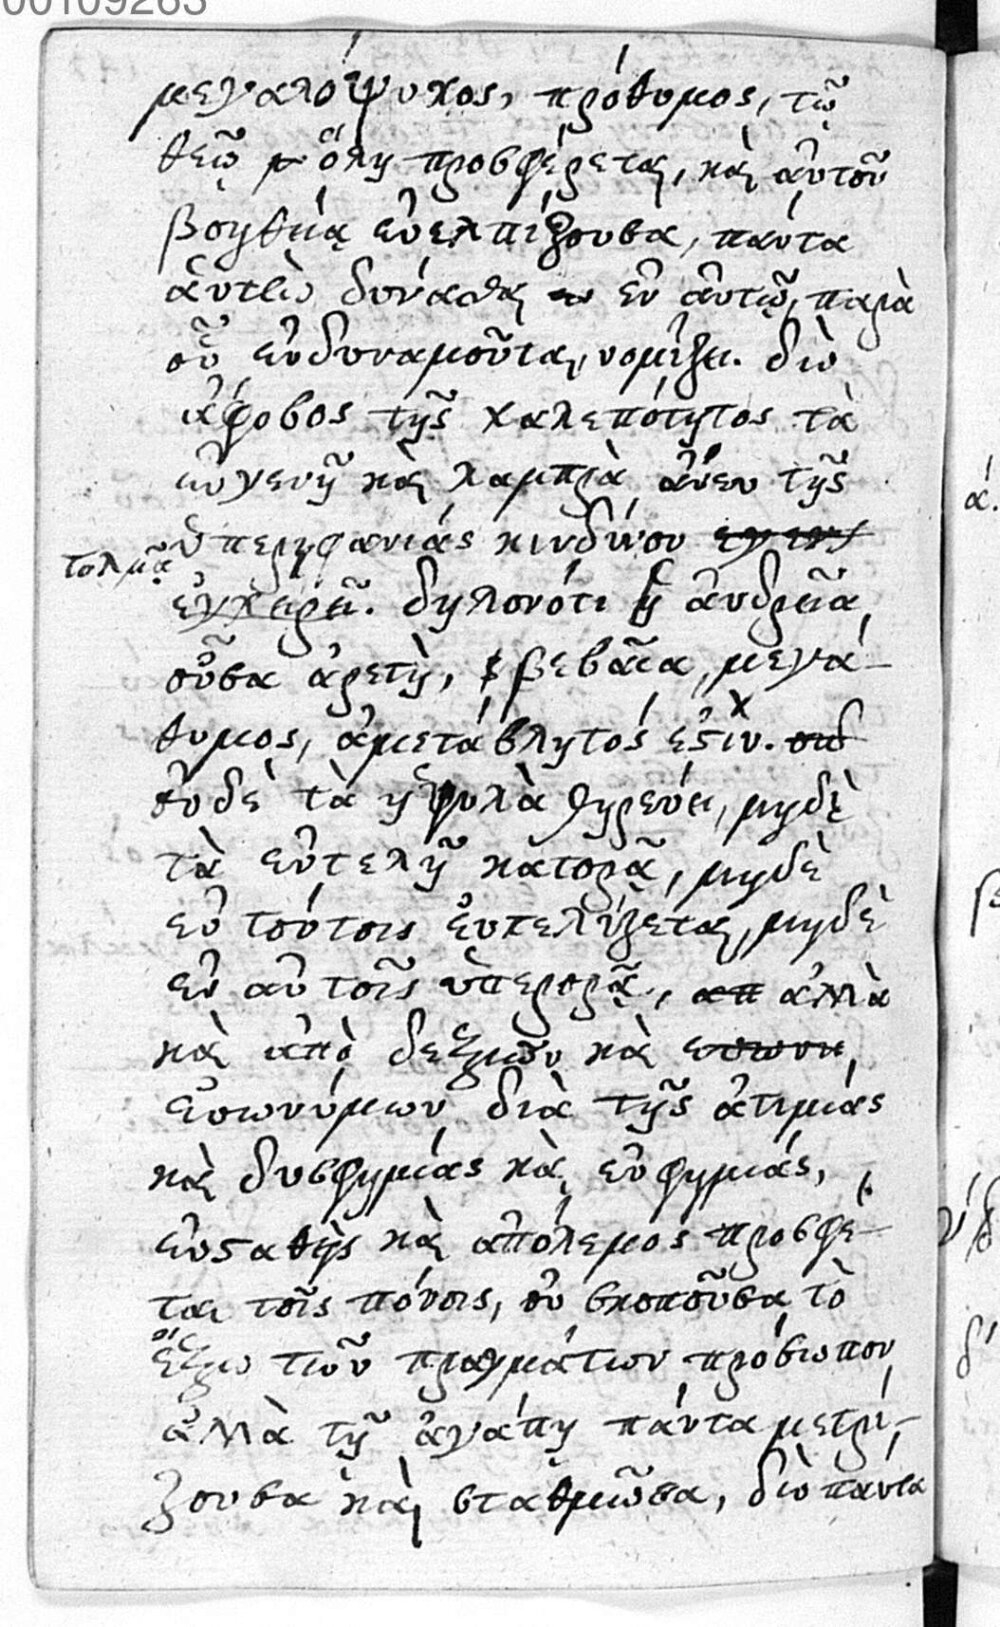 00109263
μεγαλόψυχος, πρόθυμος, τῷ
θεῷ ὅλη προσφέρεται, καὶ ἀυτοῦ
βοηθείᾳ ἐυελπίζουσα, πάντα
ἀυτὴν δύνασθαι ἐν ἀυτῷ, παρὰ
οὗ ἐνδυναμοῦται, νομίζει. διὸ
ἄφοβος τῆς χαλεπότητος τὰ
ἐυγενῆ καὶ λαμπρὰ ἄνευ τῆς
ὑπερηφανιάς κινδύνου
τολμᾷ
ἐγχειρεῖ. δηλονότι ἡ ἀνδρεῖα
οὖσα ἀρετὴ, βεβαῖα, μεγά-
θυμος, ἀμετάβλητός ἐστίν.
ὀυδὲ τὰ ὑψηλὰ θηρεύει, μηδὲ
τὰ ἐυτελῆ κατορᾶ, μηδὲ
ἐν τούτοις ἐυτελίζεται, μηδὲ
ἐν ἀυτοῖς ὑπερορᾷ, ἀλλὰ
καὶ ἀπὸ δεξιῶν καὶ
ἐυωνύμων διὰ τῆς ἀτιμίας
καὶ δυσφημίας καὶ ἐυφημιάς,
ἐυσταθὴς καὶ ἀπόλεμος προσφέ-
ται τοῖς πόνοις, ὀυ σκοποῦσα τὸ
ἔξω τῶν πραγμάτων πρόσωπον
ἀλλὰ τῇ ἀγάπῃ πάντα μετρί-
ζουσα καὶ σταθμῶσα, διὸ πάντα
ά.
δ'